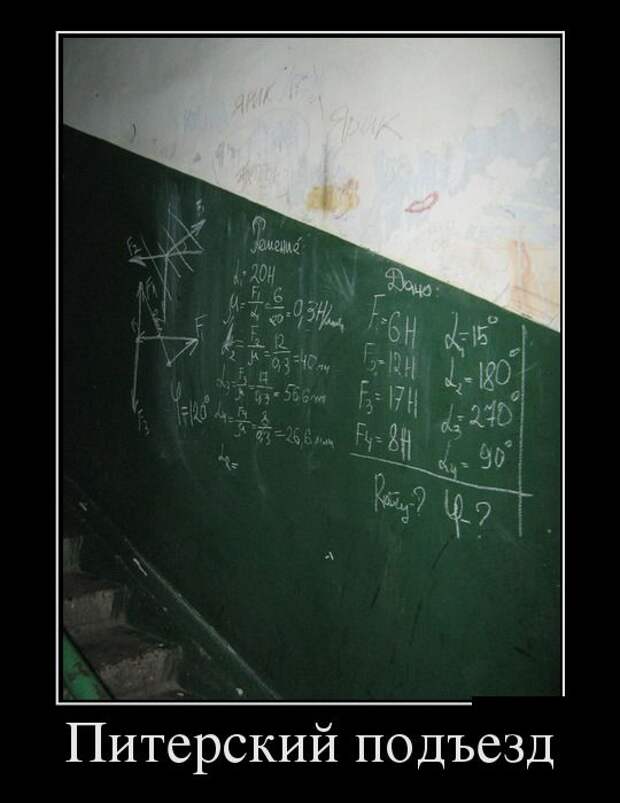 ЯРИК
ЯРИК
Решение:
L₁ = 20H
μ = F₁/L₁ = 6/20 = 0,3H/мм
L₂ = F₂/μ = 12/0,3 = 40 мм
L₃ = F₃/μ = 17/0,3 = 56,6 мм
L₄ = F₄/μ = 8/0,3 = 26,6 мм
L₂ =
F₁
F₂
F₁
F
F₃
φ = 120°
Дано:
F₁ = 6H α₁ = 15°
F₂ = 12H α₂ = 180°
F₃ = 17H α₃ = 270°
F₄ = 8H α₄ = 90°
φ - ?
Питерский подъезд